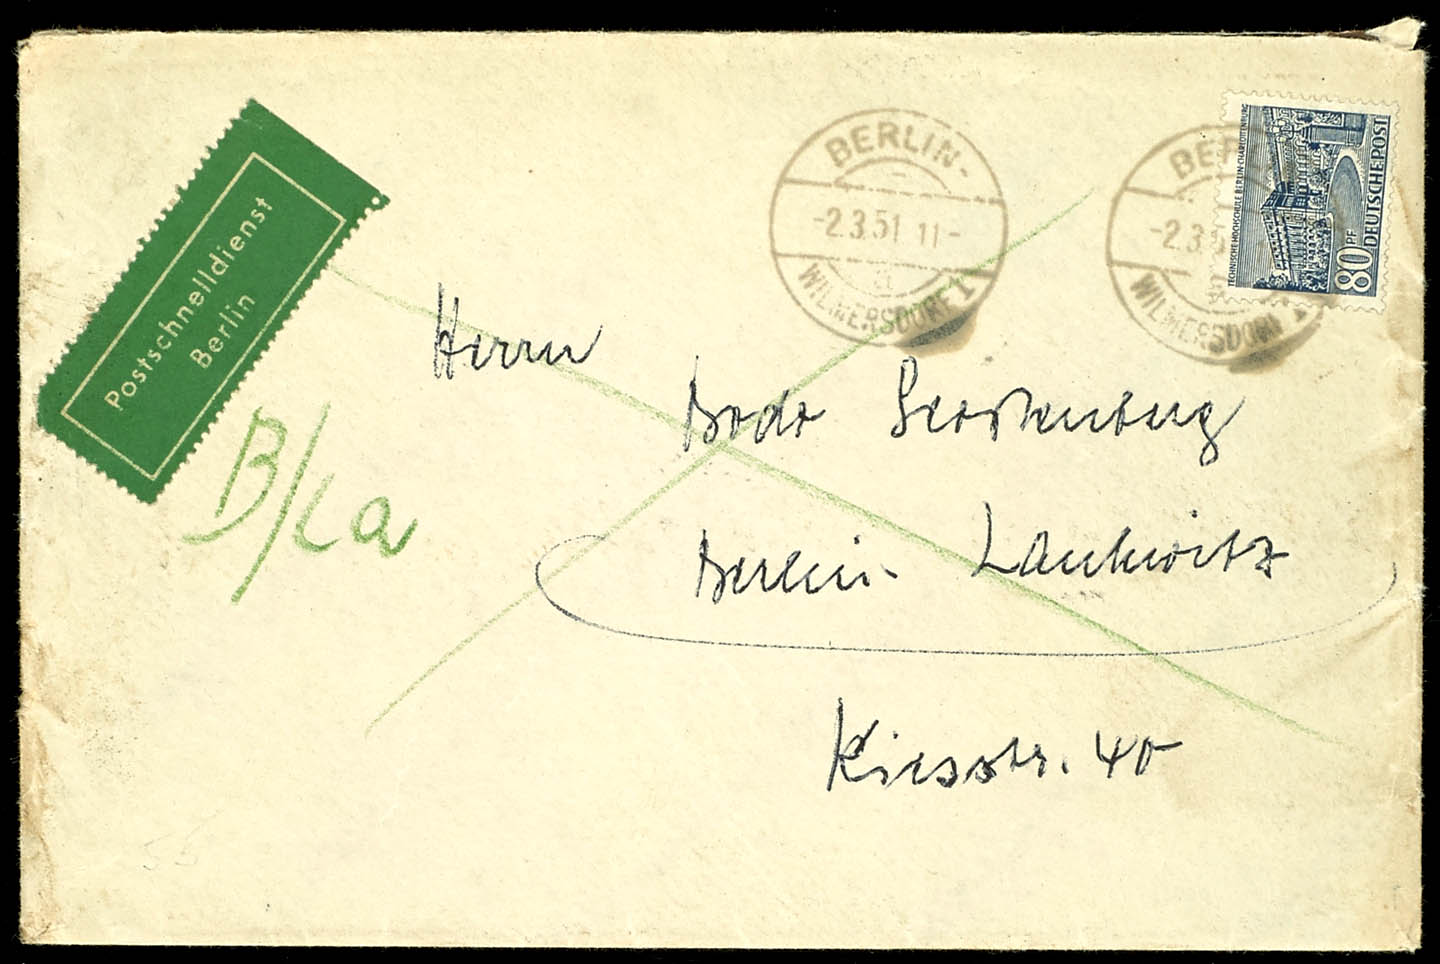 Postschnelldienst
Berlin
BERLIN-
-2.3.51 11-
a
WILMERSDORF 1
BER
-2.3.5
WILMERSDORF
TECHNISCHE HOCHSCHULE BERLIN-CHARLOTTENBURG
80 PF
DEUTSCHE POST
B/La
Herrn
Bodo
Berlin- Lankwitz
Kiesstr. 40
55